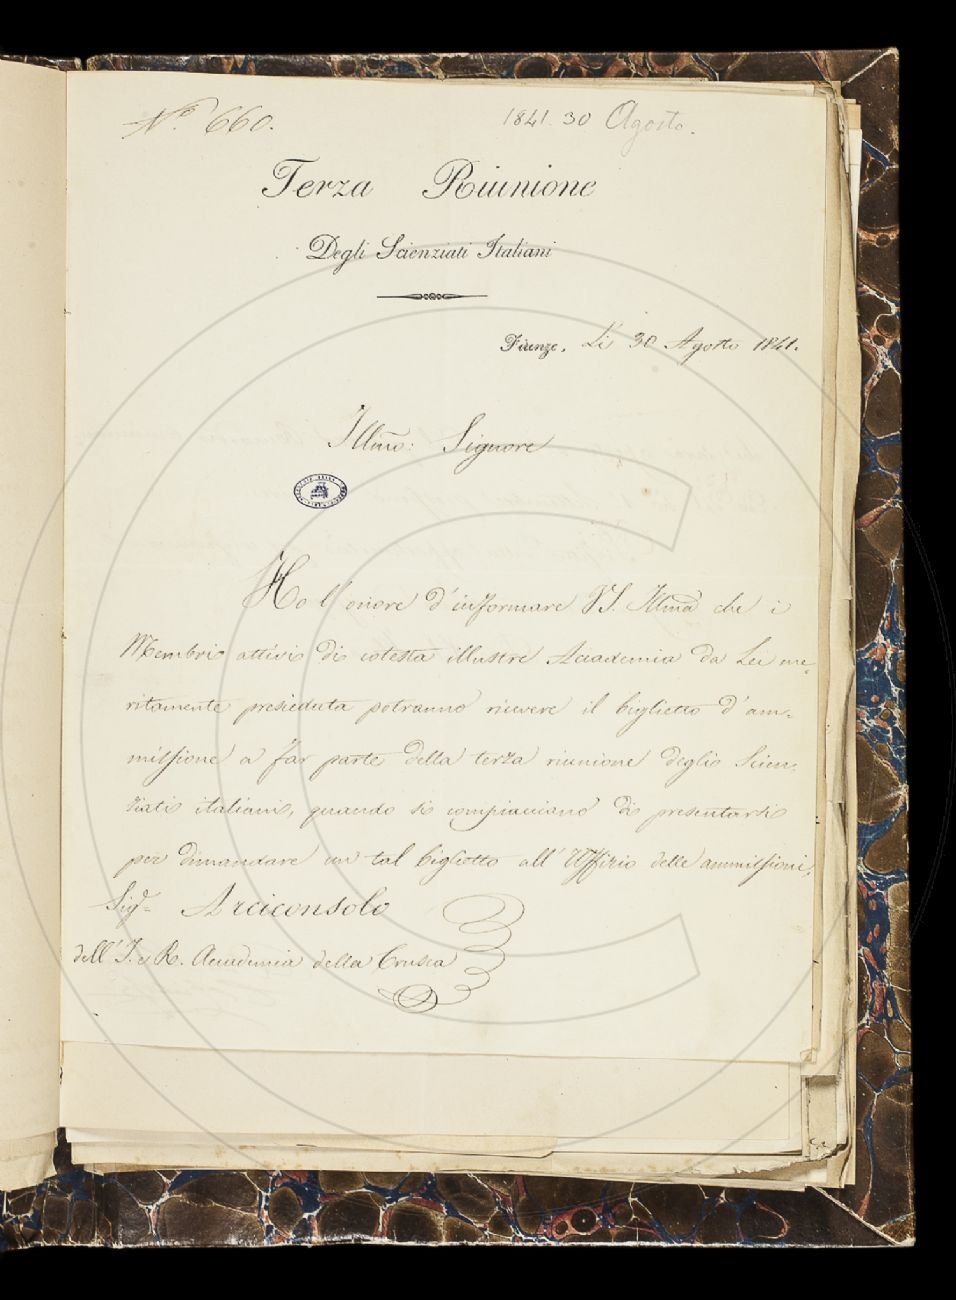 N.º 660.
1841. 30 Agosto.
Terza Riunione
Degli Scienziati Italiani
Firenze, Li 30 Agosto 1841.
Illmo: Signore
Ho l'onore d'informare VS. Illma che i
Membri attivi di cotesta illustre Accademia da Lei me-
ritamente presieduta potranno ricevere il biglietto d'am-
missione a far parte della terza riunione degli Scien-
ziati italiani, quando si compiacciano di presentarsi
per dimandare un tal biglietto all'Uffizio delle ammissioni.
Sigr. Arciconsolo
dell'I. e R. Accademia della Crusca